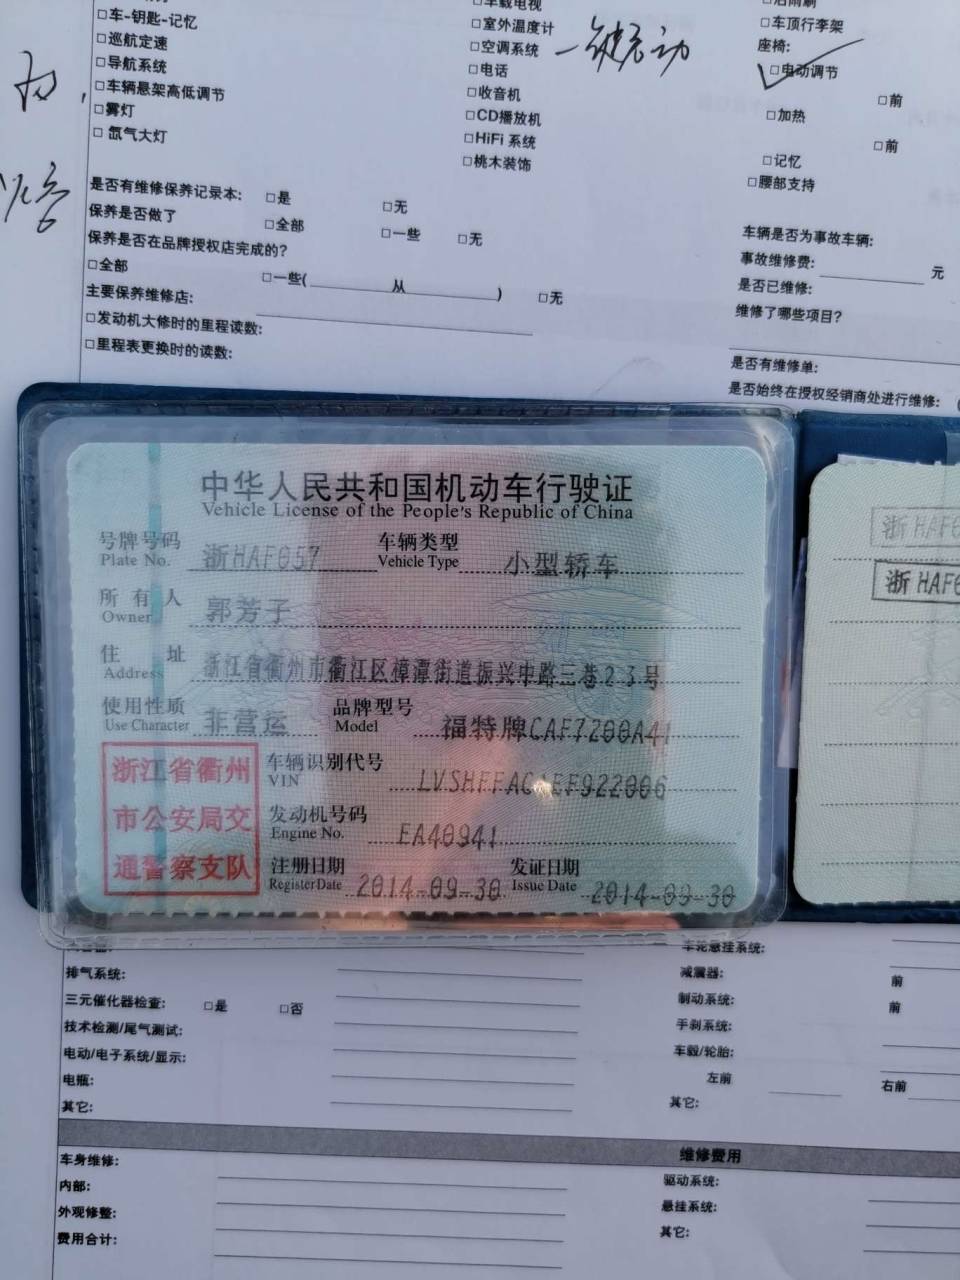 □车-钥匙-记忆
□巡航定速
□导航系统
□车辆悬架高低调节
□雾灯
□ 氙气大灯
□车载电视
□室外温度计
□空调系统 一键启动
□电话
□收音机
□CD播放机
□HiFi 系统
□桃木装饰
□后雨刷
□车顶行李架
座椅:
□电动调节
□前
□加热
□前
□记忆
□腰部支持
是否有维修保养记录本: □是 □无
保养是否做了 □全部 □一些 □无
保养是否在品牌授权店完成的?
□全部 □一些( 从 ) □无
主要保养维修店:
□发动机大修时的里程读数:
□里程表更换时的读数:
车辆是否为事故车辆:
事故维修费: 元
是否已维修:
维修了哪些项目?
是否有维修单:
是否始终在授权经销商处进行维修:
中华人民共和国机动车行驶证
Vehicle License of the People's Republic of China
号牌号码 浙HAF057 车辆类型 小型轿车
Plate No. Vehicle Type
所有人 郭芳子
Owner
住址 浙江省衢州市衢江区樟潭街道振兴中路三巷23号
Address
使用性质 非营运 品牌型号 福特牌CAF7200A41
Use Character Model
浙江省衢州
市公安局交
通警察支队
车辆识别代号
VIN
发动机号码 EA40941
Engine No.
注册日期 2014-09-30 发证日期 2014-09-30
Register Date Issue Date
浙HAF0
浙HAF0
排气系统:
三元催化器检查: □是 □否
技术检测/尾气测试:
电动/电子系统/显示:
电瓶:
其它:
车轮悬挂系统:
减震器: 前
制动系统: 前
手刹系统:
车毂/轮胎:
左前 右前
其它:
维修费用
车身维修:
内部:
外观修整:
费用合计:
驱动系统:
悬挂系统:
其它: